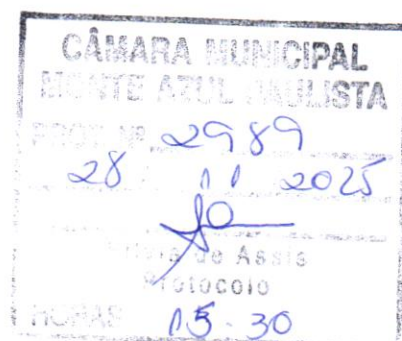 CÂMARA MUNICIPAL
MONTE AZUL PAULISTA
PROT. Nº 2989
28 11 2025
de Assis
Protocolo
HORAS 15.30